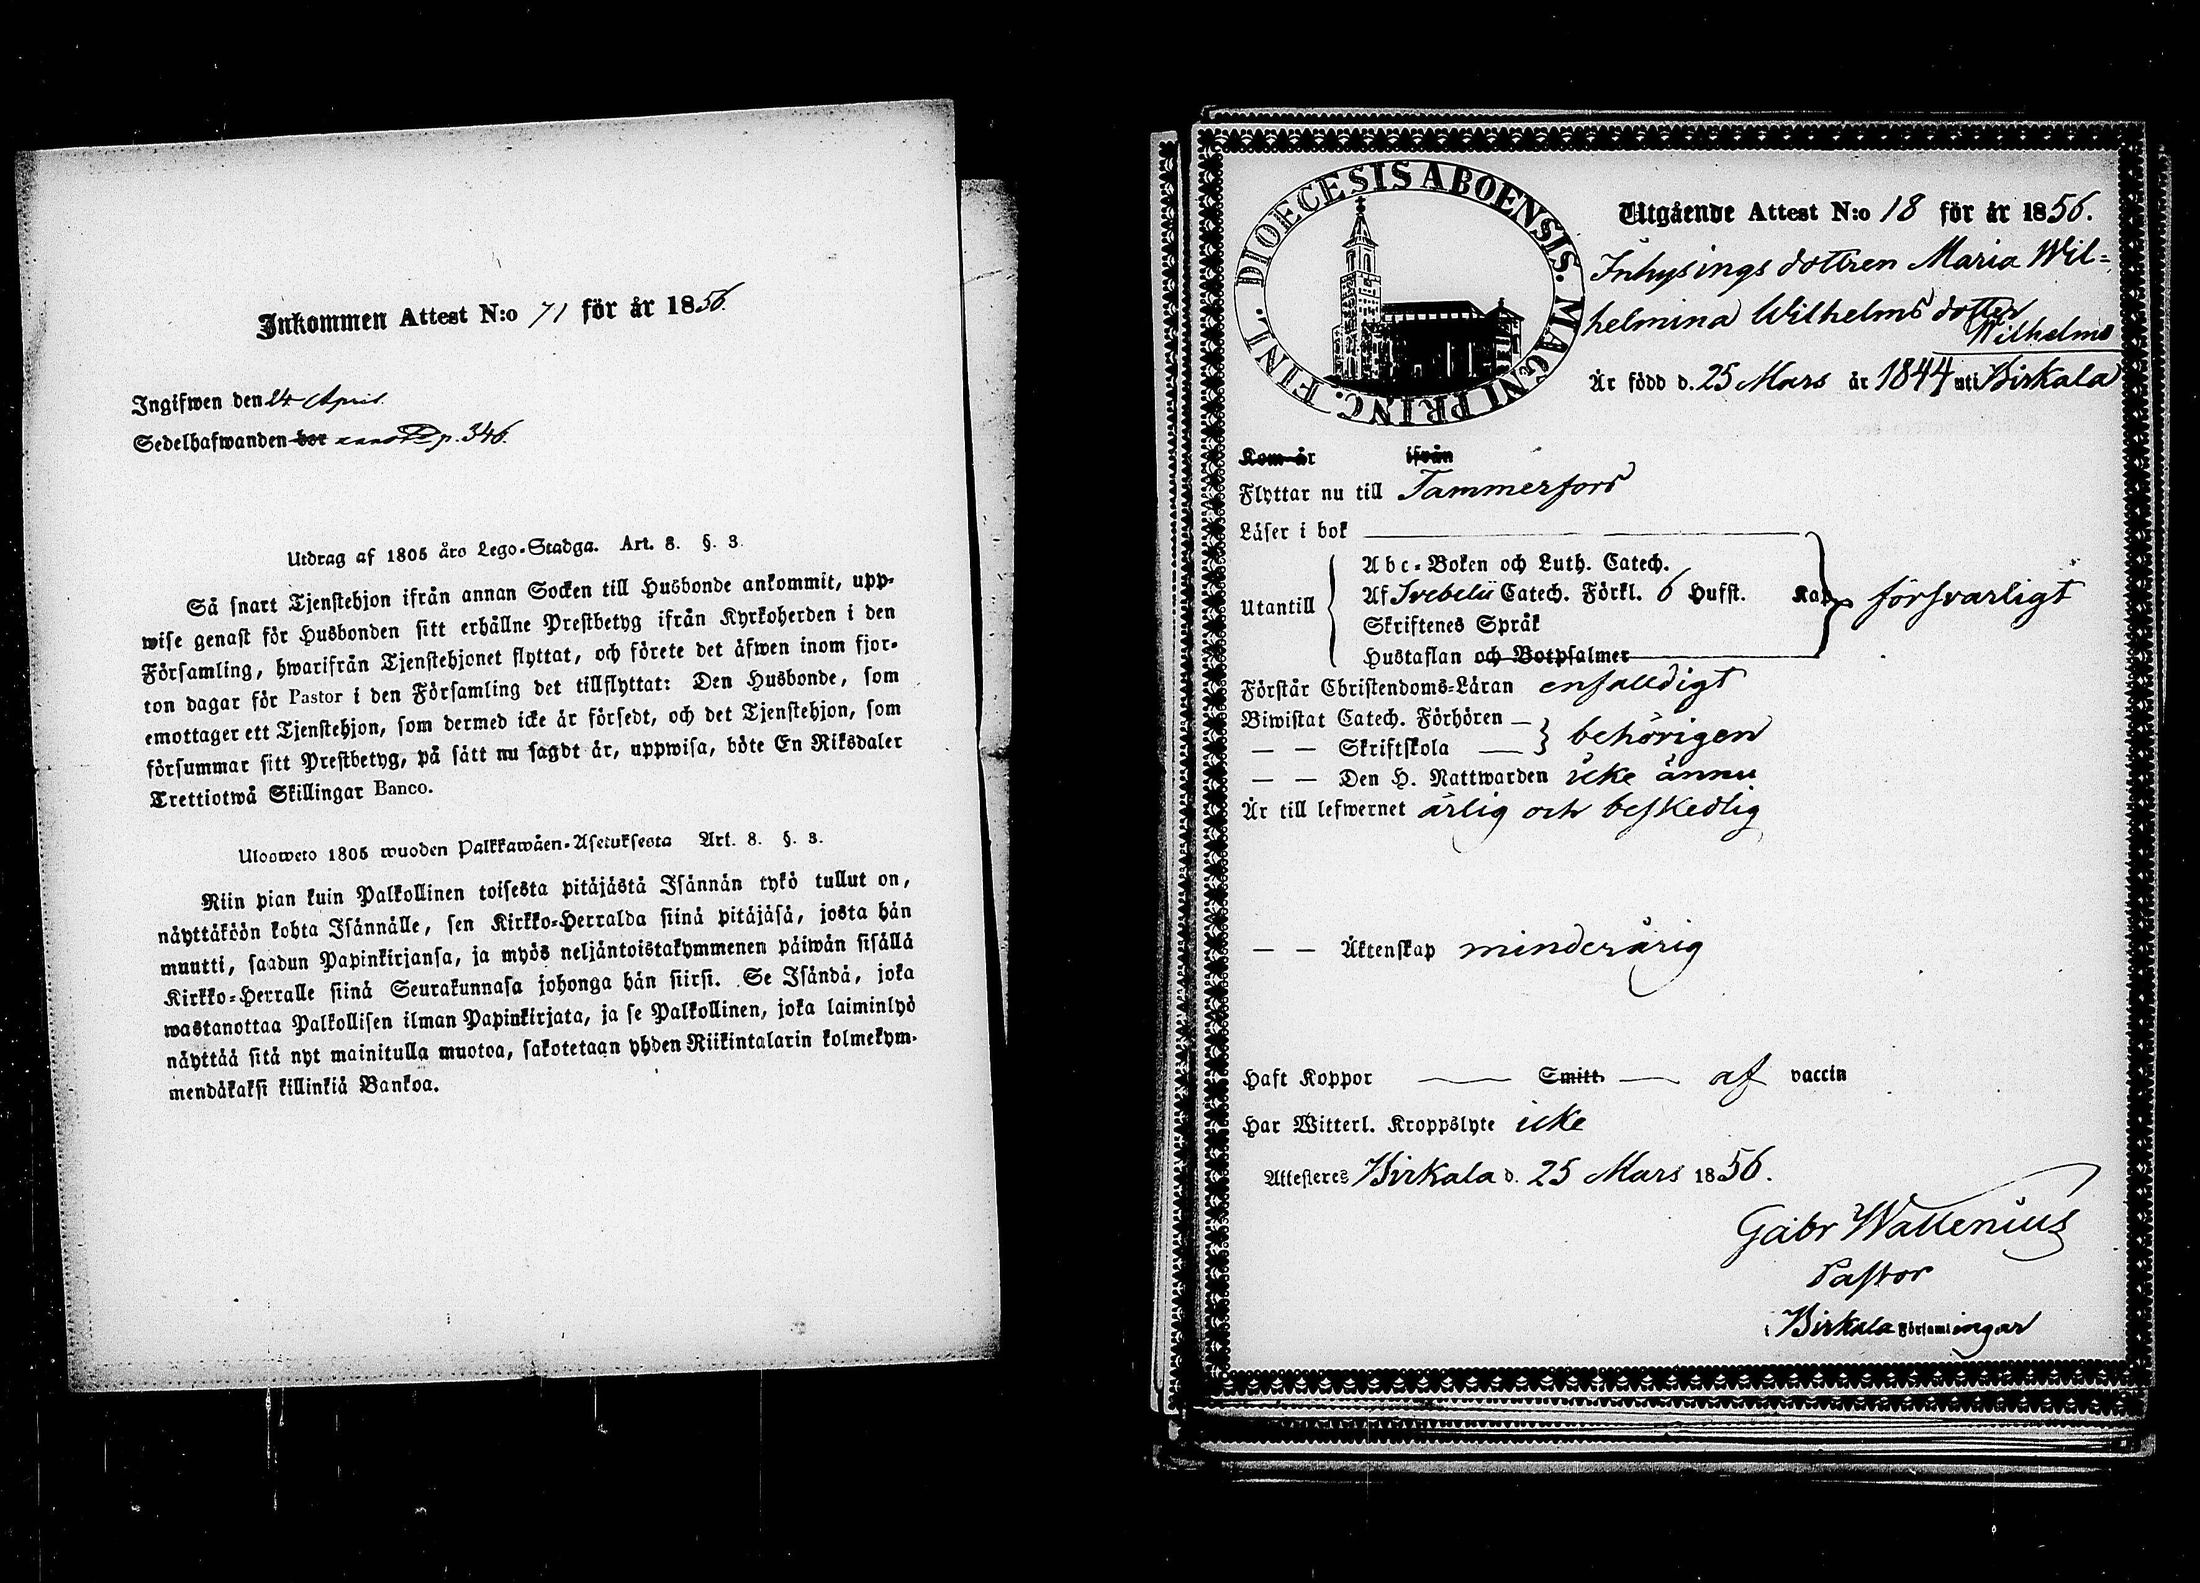 Inkommen Attest N:o 71 för år 1856.
Ingifwen den 24 April.
Sedelhafwanden bor p. 346.
Utdrag af 1805 års Lego-Stadga. Art. 8. §. 3.
Så snart Tjenstehjon ifrån annan Socken till Husbonde ankommit, upp-
wise genast för Husbonden sitt erhållne Prestbetyg ifrån Kyrkoherden i den
Församling, hwarifrån Tjenstehjonet flyttat, och förete det äfwen inom fjor-
ton dagar för Pastor i den Församling det tillflyttat: Den Husbonde, som
emottager ett Tjenstehjon, som dermed icke är försedt, och det Tjenstehjon, som
försummar sitt Prestbetyg, på sätt nu sagdt är, uppwisa, böte En Riksdaler
Trettiotwå Skillingar Banco.
Ulosweto 1805 wuoden Palkkawäen-Asetuksesta Art. 8. §. 3.
Niin pian kuin Palkollinen toisesta pitäjästä Isännän tykö tullut on,
näyttäköön kohta Isännälle, sen Kirkko-Herralda siinä pitäjäsä, josta hän
muutti, saadun Papinkirjansa, ja myös neljäntoistakymmenen päiwän sisällä
Kirkko-Herralle siinä Seurakunnasa johonga hän siirsi. Se Isändä, joka
wastanottaa Palkollisen ilman Papinkirjata, ja se Palkollinen, joka laiminlyö
näyttää sitä nyt mainitulla muotoa, sakotetaan yhden Riikintalarin kolmekym-
mendäkaksi killinkiä Bankoa.
DIOECESIS ABOENSIS. MAGNI PRINC. FINL.
Utgående Attest N:o 18 för år 1856.
Inhysings dottren Maria Wil-
helmina Wilhelms dotter
Wilhelms
Är född d. 25 Mars år 1844 uti Birkala
Kom år ifrån
Flyttar nu till Tammerfors
Läser i bok
Utantill
Abc-Boken och Luth. Catech.
Af Svebelii Catech. Förkl. 6 Hufst. Kap.
Skriftenes Språk
Hustaflan och Botpsalmer
försvarligt
Förstår Christendoms-Läran enfalldigt
Biwistat Catech. Förhören
— — Skriftskola — behörigen
— — Den H. Nattwarden icke ännu
Är till lefwernet ärlig och beskedlig
— — Äktenskap minderårig
Haft Koppor — Smitt. — af vaccin
Har Witterl. Kroppslyte icke
Attesteres Birkala d. 25 Mars 1856.
Gabr Wallenius
Pastor
i Birkala Församlingar